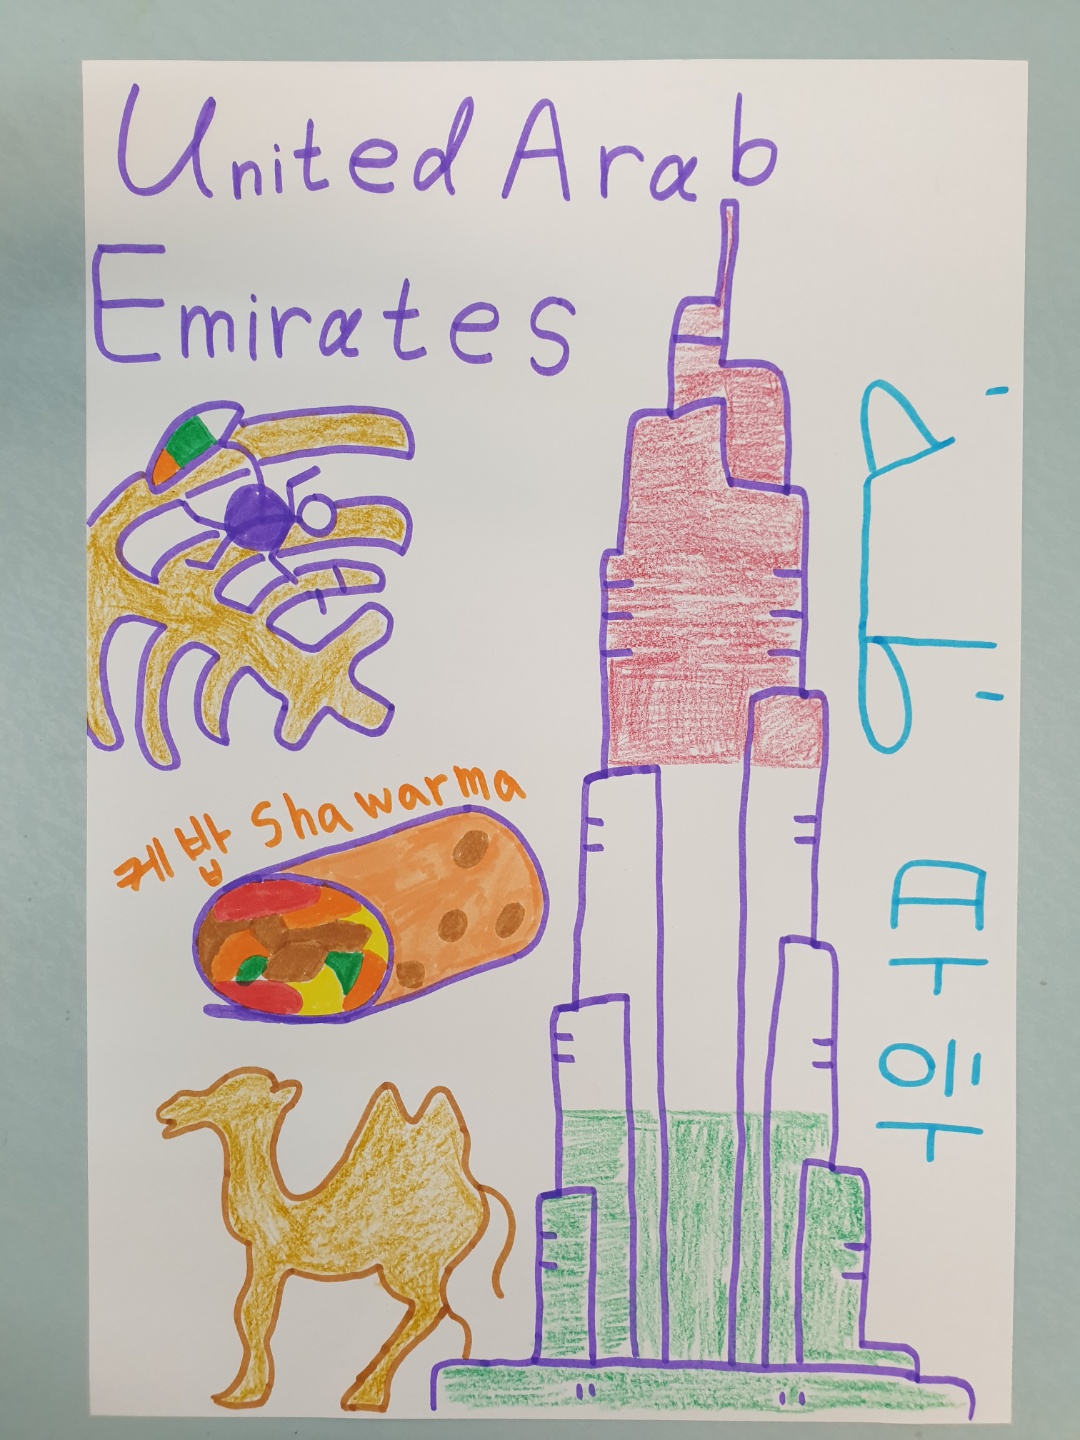 United Arab
Emirates
케밥 Shawarma